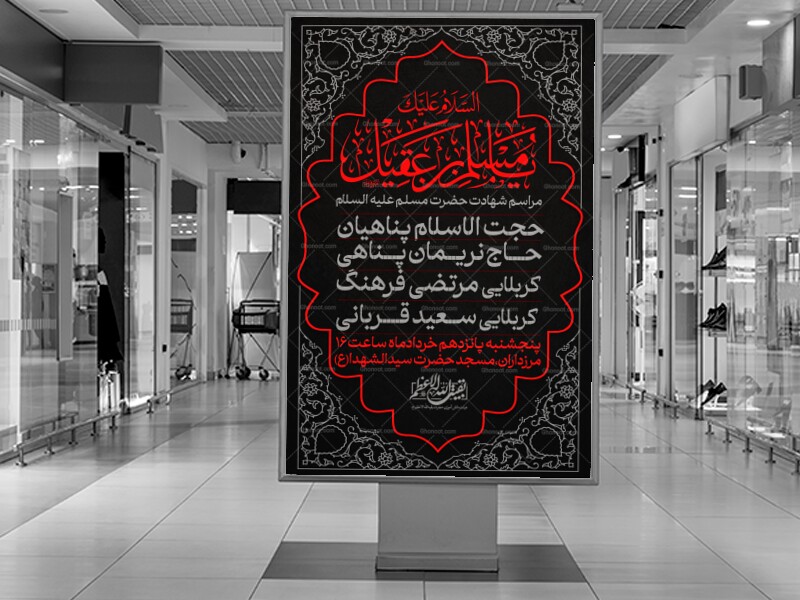 السَّلامُ عَلَیْكَ
یا مسلم بن عقیل
مراسم شهادت حضرت مسلم علیه السلام
حجت الاسلام پناهیان
حاج نریمان پناهی
کربلایی مرتضی فرهنگ
کربلایی سعید قربانی
پنجشنبه پانزدهم خردادماه ساعت ۱۶
مرزداران،مسجد حضرت سیدالشهدا(ع)
بقیة الله الاعظم
Ghonoot.com